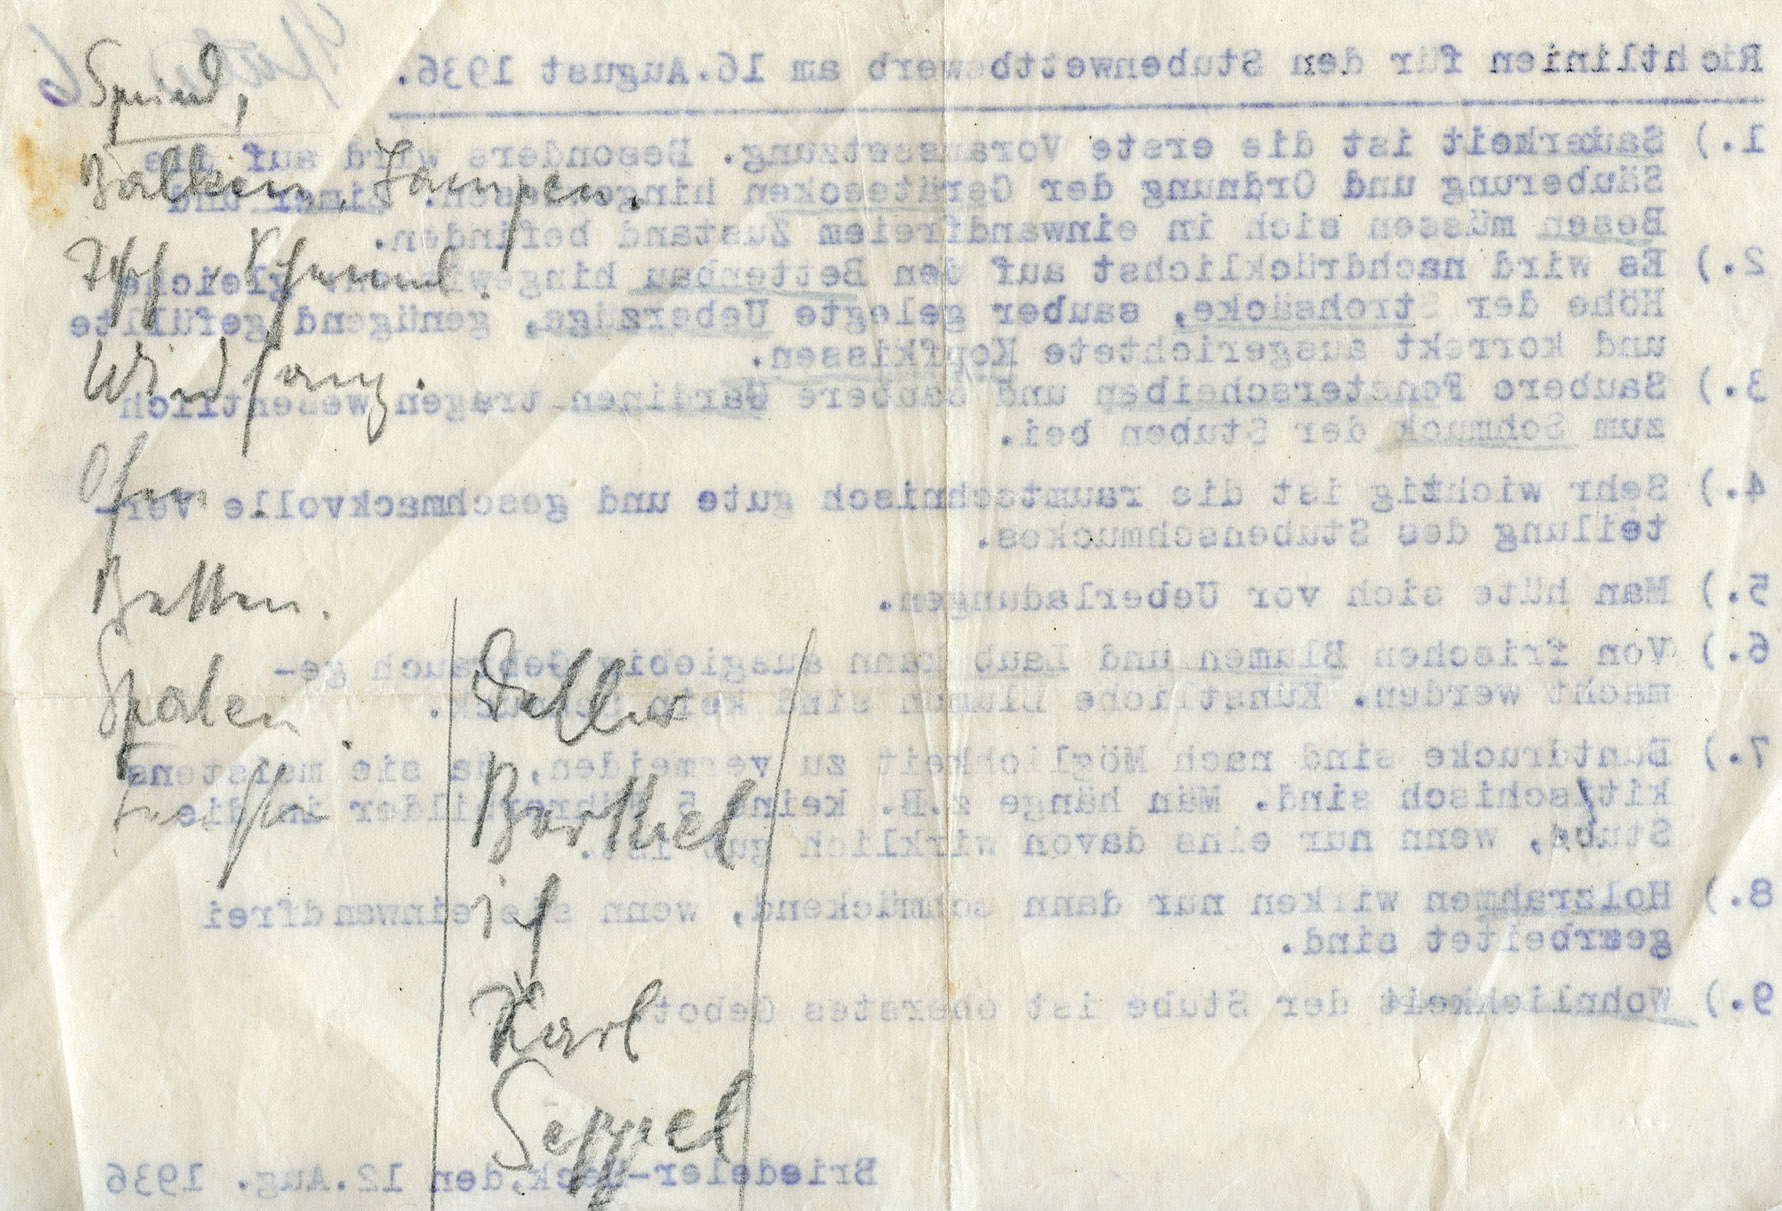 Richtlinien für den Stubenwettbewerb am 16.August 1936.
1.) Sauberkeit ist die erste Voraussetzung. Besonders wird auf die
Säuberung und Ordnung der Geräteecken hingewiesen. Eimer und
Besen müssen sich in einwandfreiem Zustand befinden.
2.) Es wird nachdrücklichst auf den Bettenbau hingewiesen, gleiche
Höhe der Strohsäcke, sauber gelegte Ueberzüge, genügend gefüllte
und korrekt ausgerichtete Kopfkissen.
3.) Saubere Fensterscheiben und saubere Gardinen tragen wesentlich
zum Schmuck der Stuben bei.
4.) Sehr wichtig ist die raumtechnisch gute und geschmackvolle Ver-
teilung des Stubenschmuckes.
5.) Man hüte sich vor Ueberladungen.
6.) Von frischen Blumen und Laub kann ausgiebig Gebrauch ge-
macht werden. Künstliche Blumen sind kein Schmuck.
7.) Buntdrucke sind nach Möglichkeit zu vermeiden, da sie meistens
kitschisch sind. Man hänge z.B. keine 5 Führerbilder in die
Stube, wenn nur eins davon wirklich gut ist.
8.) Holzrahmen wirken nur dann schmückend, wenn sie einwandfrei
gearbeitet sind.
9.) Wohnlichkeit der Stube ist oberstes Gebot.
Briedeler-Heck, den 12.Aug. 1936
Spind,
Balken. Lampen.
Windfang.
Ofen
Betten.
Spaten.
Barthel
ich
Karl
Seppel